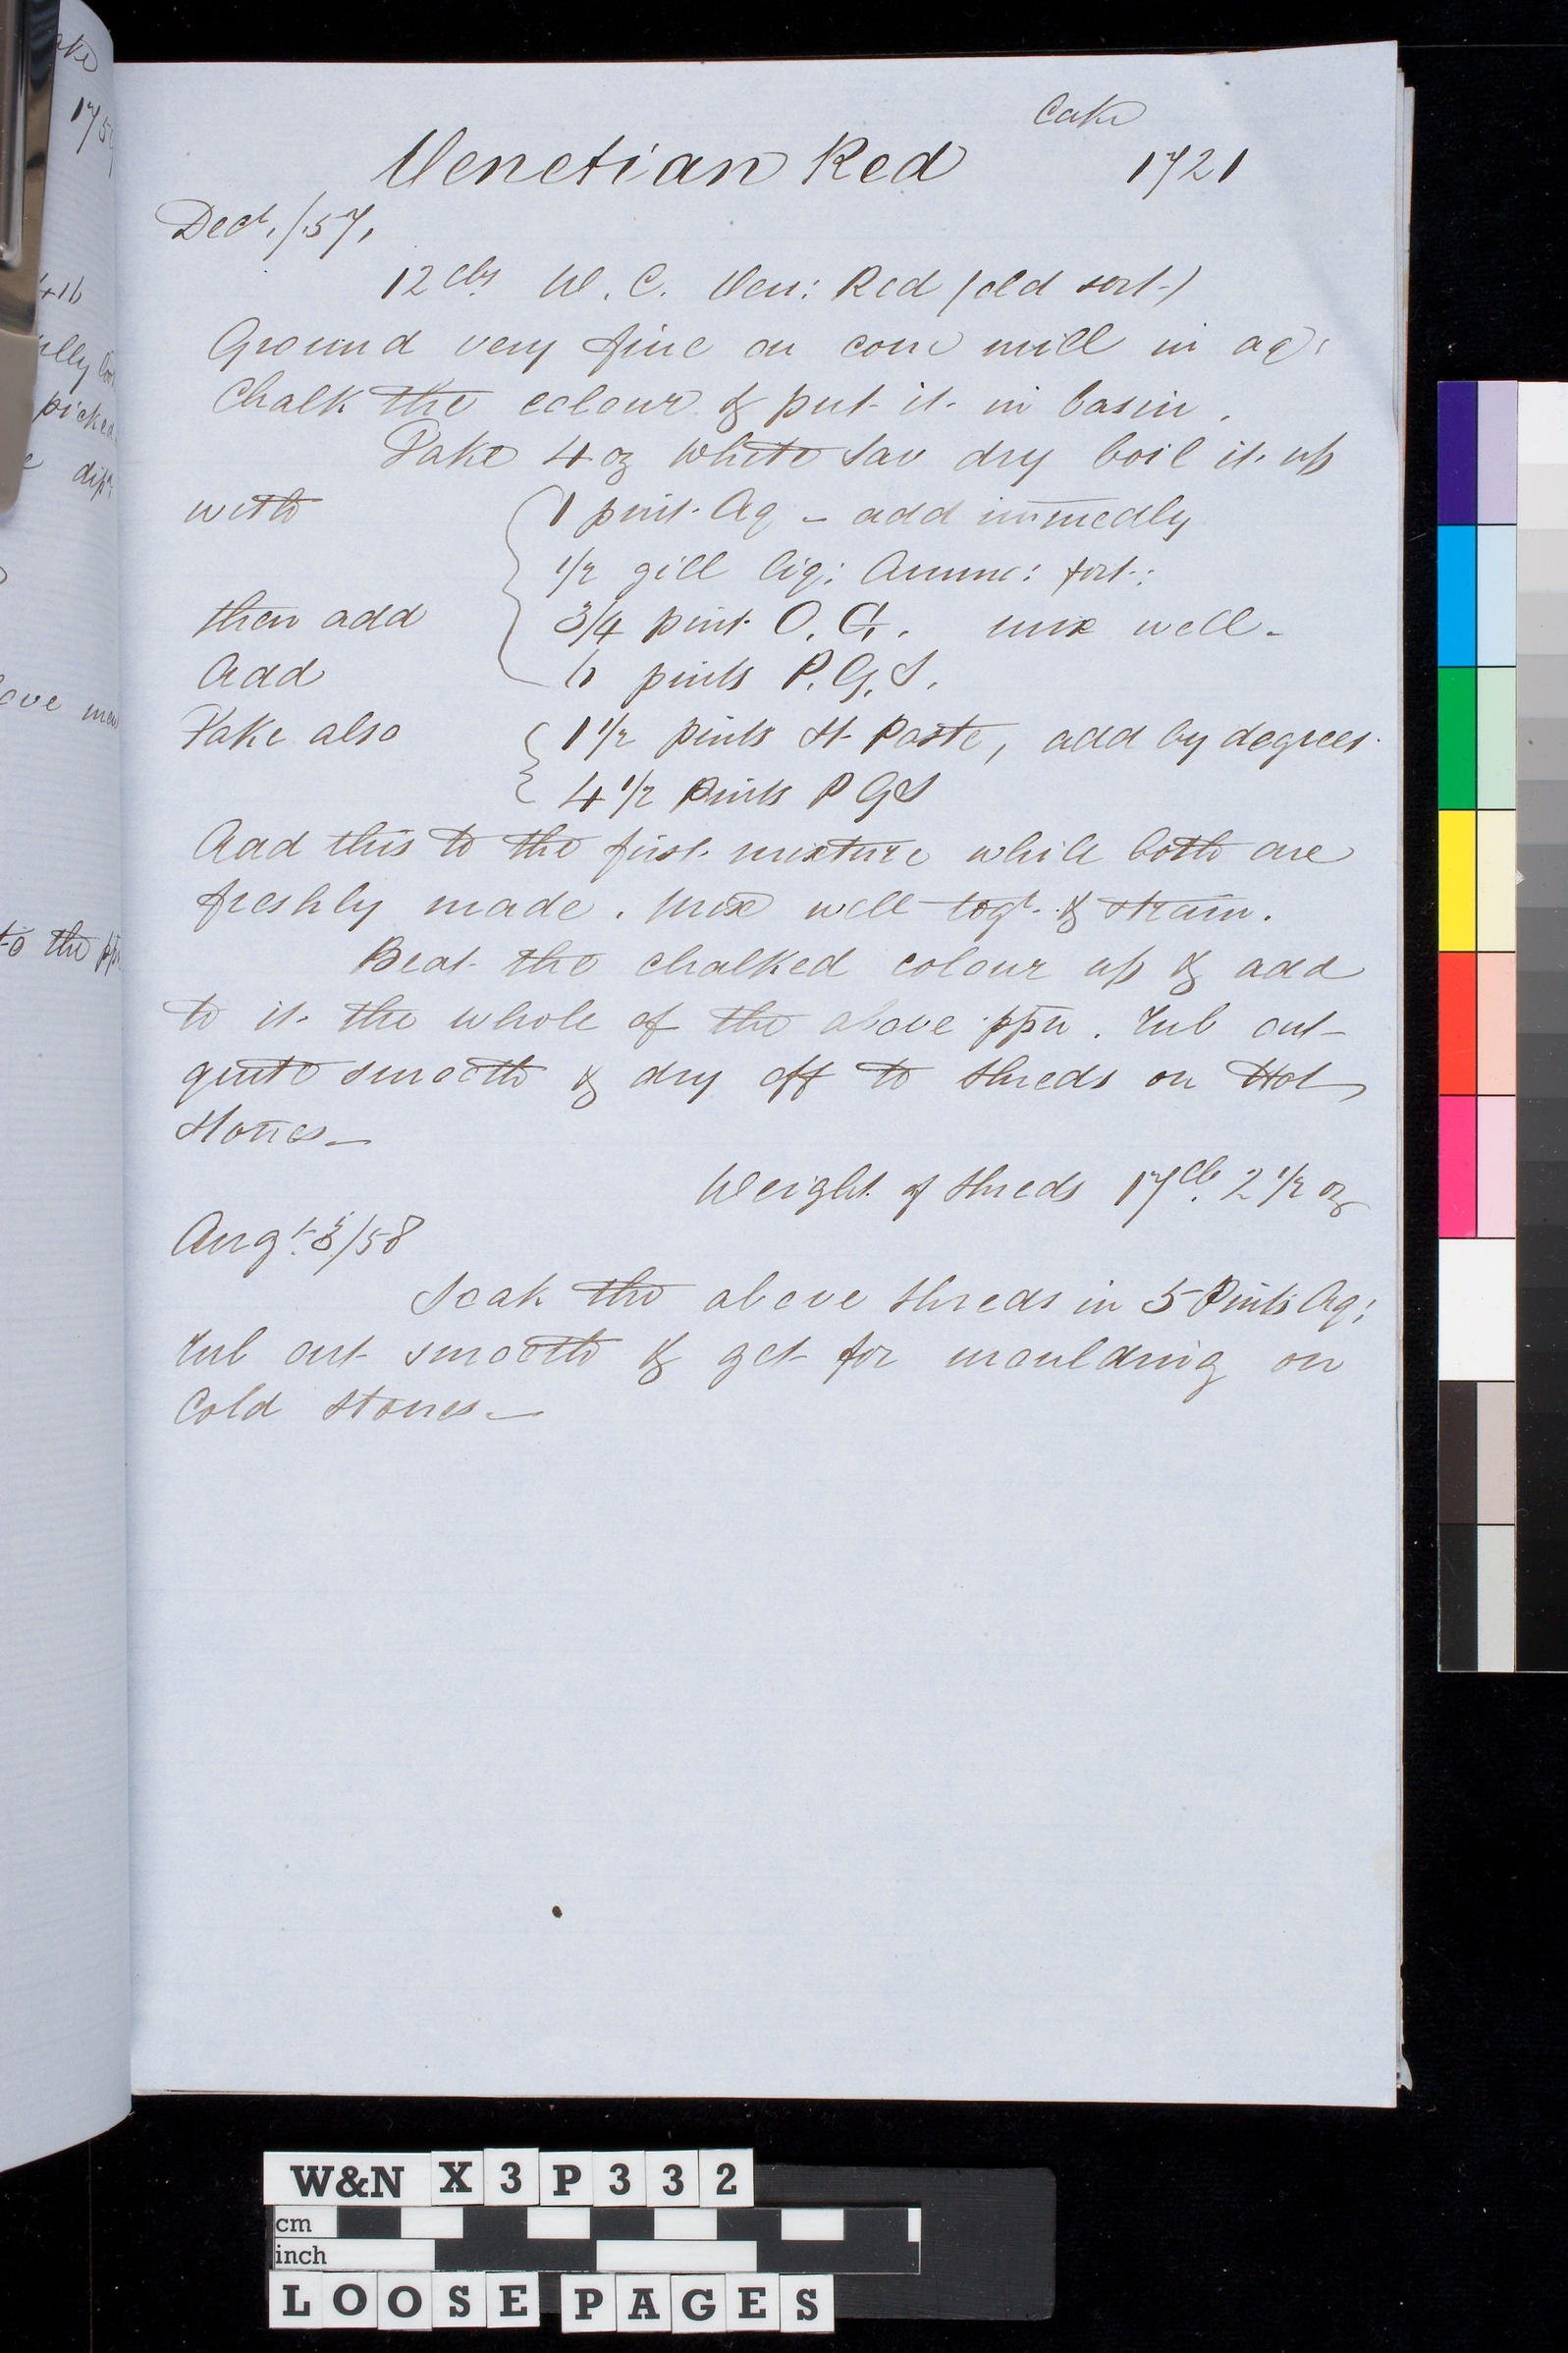 Cake
Venetian Red 1721
Decr./57,
12 lbs W. C. Ven: Red (old sort)
Ground very fine on cone mill in aq:
Chalk the colour & put it in basin.
Take 4 oz White Sav dry boil it up
with 1 pint Aq - add immedly
1/2 gill liq: Ammo: fort:
then add 3/4 pint O. G. mix well -
Add 6 pints P. G. S.
Take also 1 1/2 pints St Paste, add by degrees
4 1/2 Pints P G S
Add this to the first mixture while both are
freshly made. Mix well togr. & strain.
Beat the chalked colour up & add
to it the whole of the above ppn. Rub out
quite smooth & dry off to shreds on Hot
Stones -
Weight of shreds 17 lb. 2 1/2 oz
Augt. 3/58
Soak the above shreds in 5 Pints Aq:
Rub out smooth & get for moulding on
Cold stones -
ake
175
4 lb
ully
picked
dipn
ove
to the pp
W&N X3P332
cm
inch
LOOSE PAGES